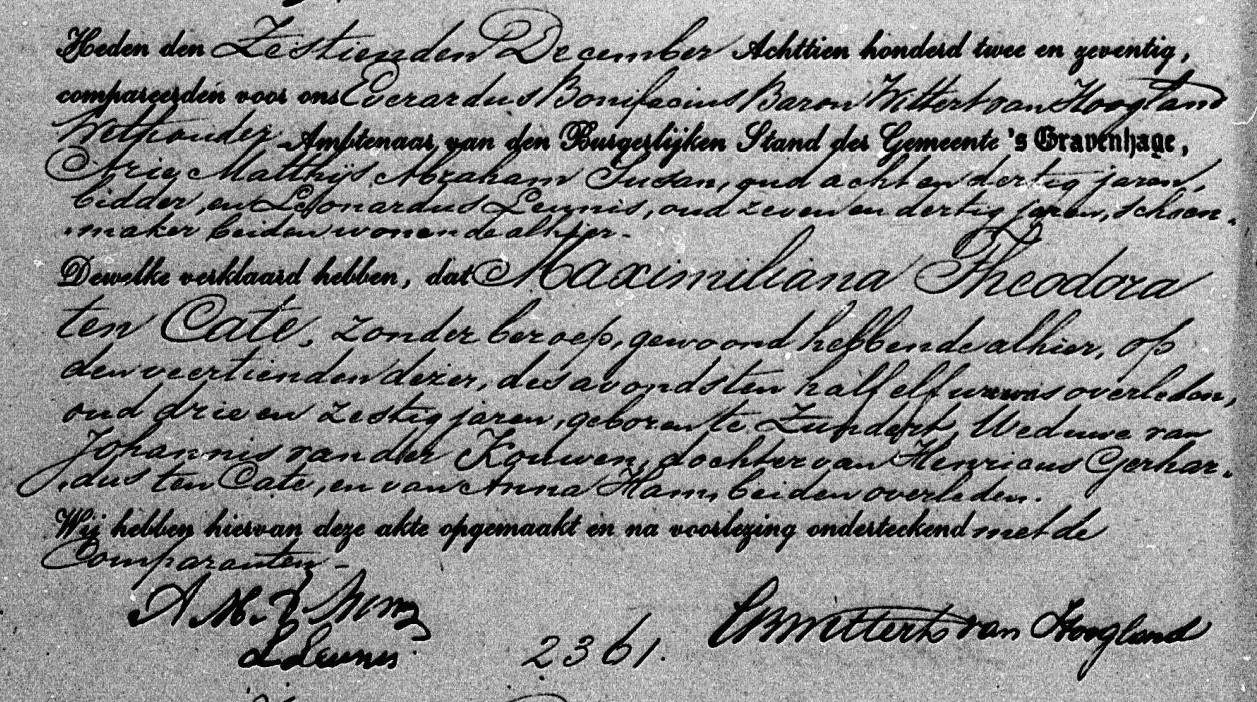 Heden den Zestienden December Achttien honderd twee en zeventig,
compareerden voor ons Everardus Bonifacius Baron Wittert van Hoogland
Wethouder Ambtenaar van den Burgerlijken Stand der Gemeente 's Gravenhage,
Arie Matthijs Abraham Susan, oud acht en dertig jaren,
bidder, en Leonardus Leunis, oud zeven en dertig jaren, schoen-
maker beiden wonende alhier.-
Dewelke verklaard hebben, dat Maximiliana Theodora
ten Cate, zonder beroep, gewoond hebbende alhier, op
den veertienden dezer, des avonds ten half elf ure is overleden,
oud drie en zestig jaren, geboren te Zundert, Weduwe van
Johannis van der Kouwen, dochter van Henricus Gerhar-
dus ten Cate, en van Anna Ham, beiden overleden.
Wij hebben hiervan deze akte opgemaakt en na voorlezing onderteekend met de
Comparanten.-
A. M. A. Susan
L Leunis
2361.
EBWittert van Hoogland